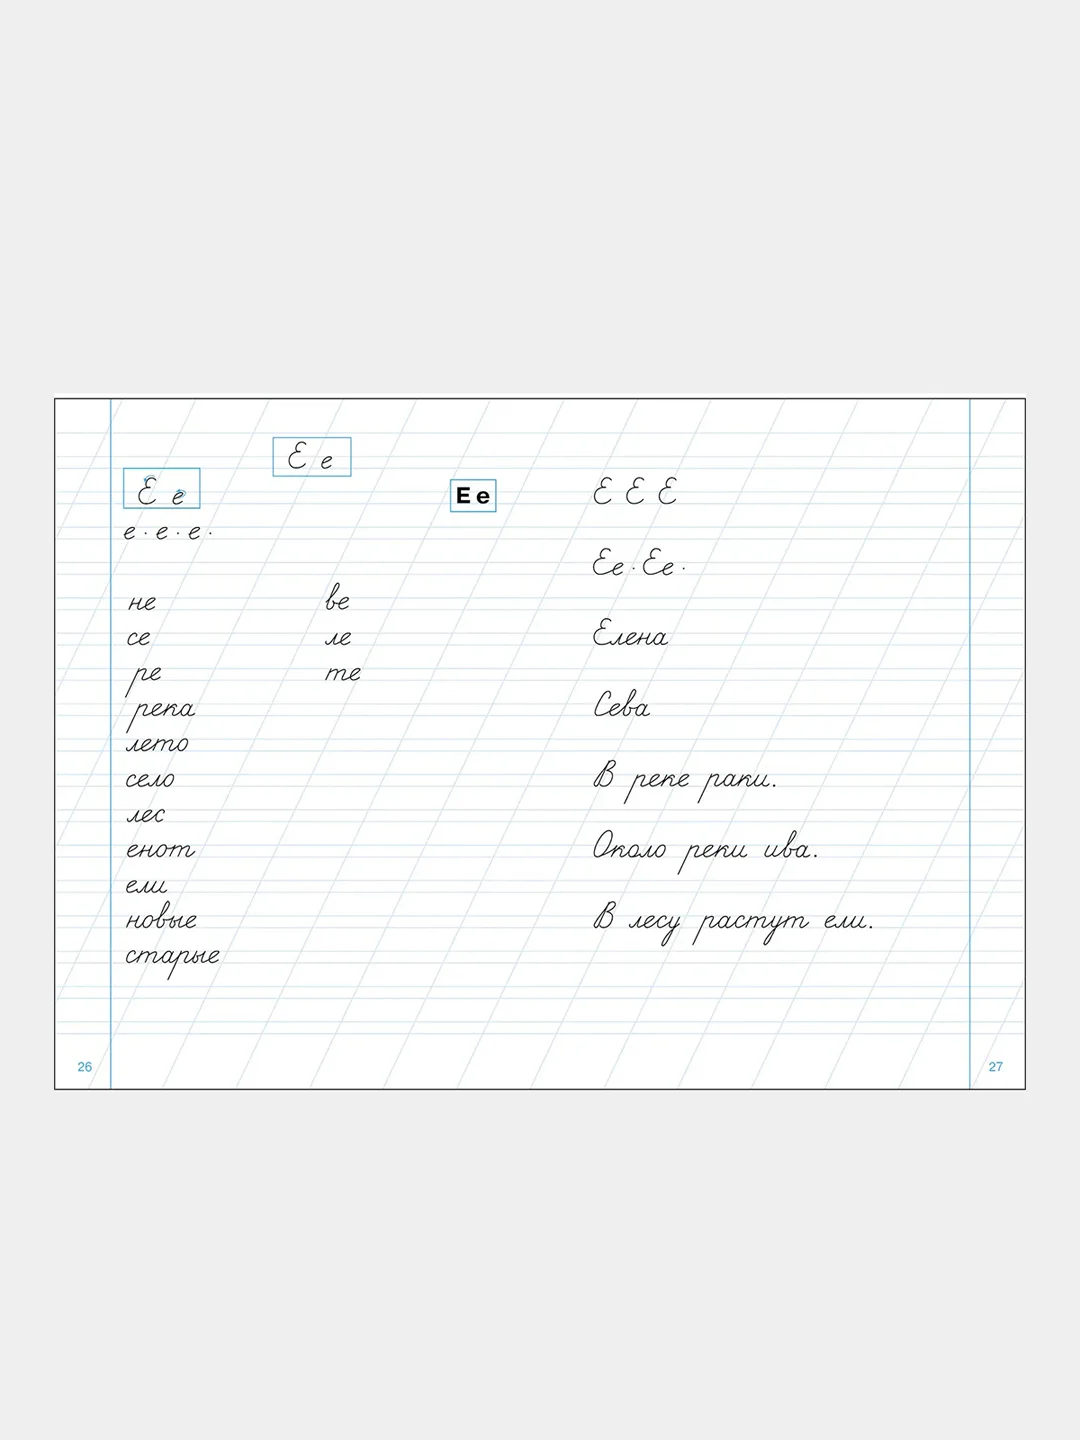 Е е
Е е
Е е
е · е · е ·
не ве
се ле
ре те
река
лето
село
лес
енот
ели
новые
старые
26
Е Е Е
Ее · Ее ·
Елена
Сева
В реке раки.
Около реки ива.
В лесу растут ели.
27